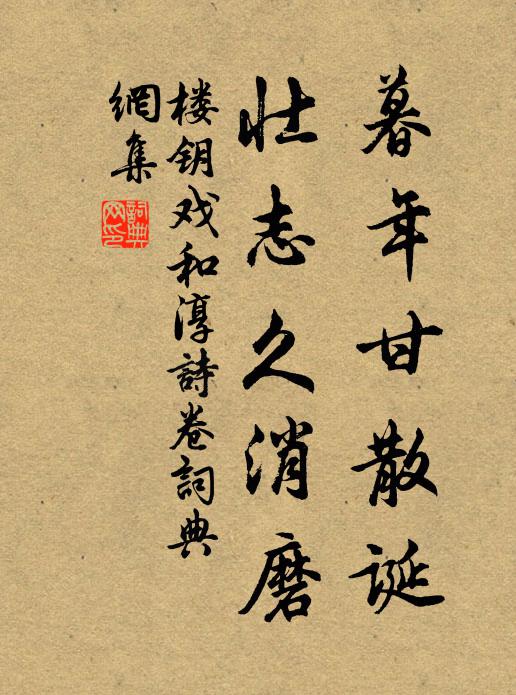 暮年甘散诞
壮志久消磨
楼钥戏和淳詩卷詞典
網集
詞典
网印